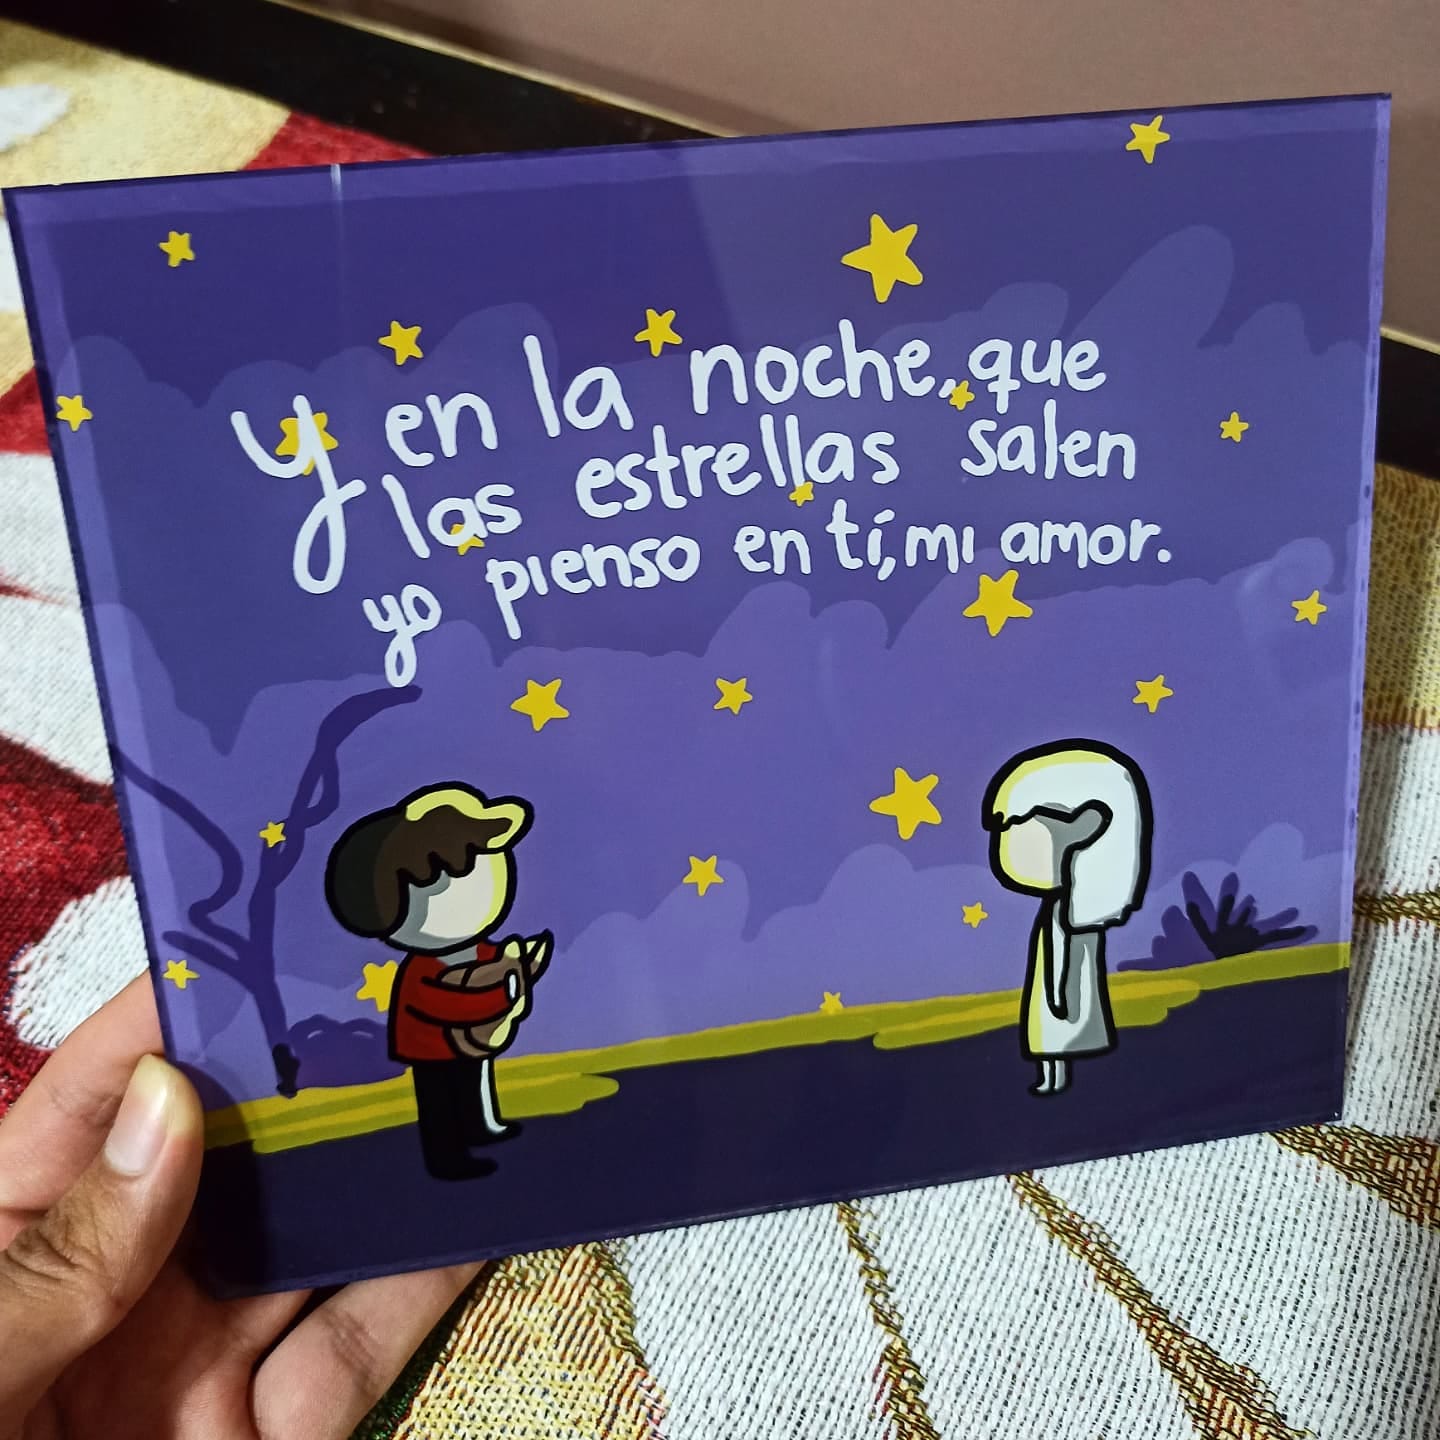 y en la noche, que
las estrellas salen
yo pienso en tí, mi amor.